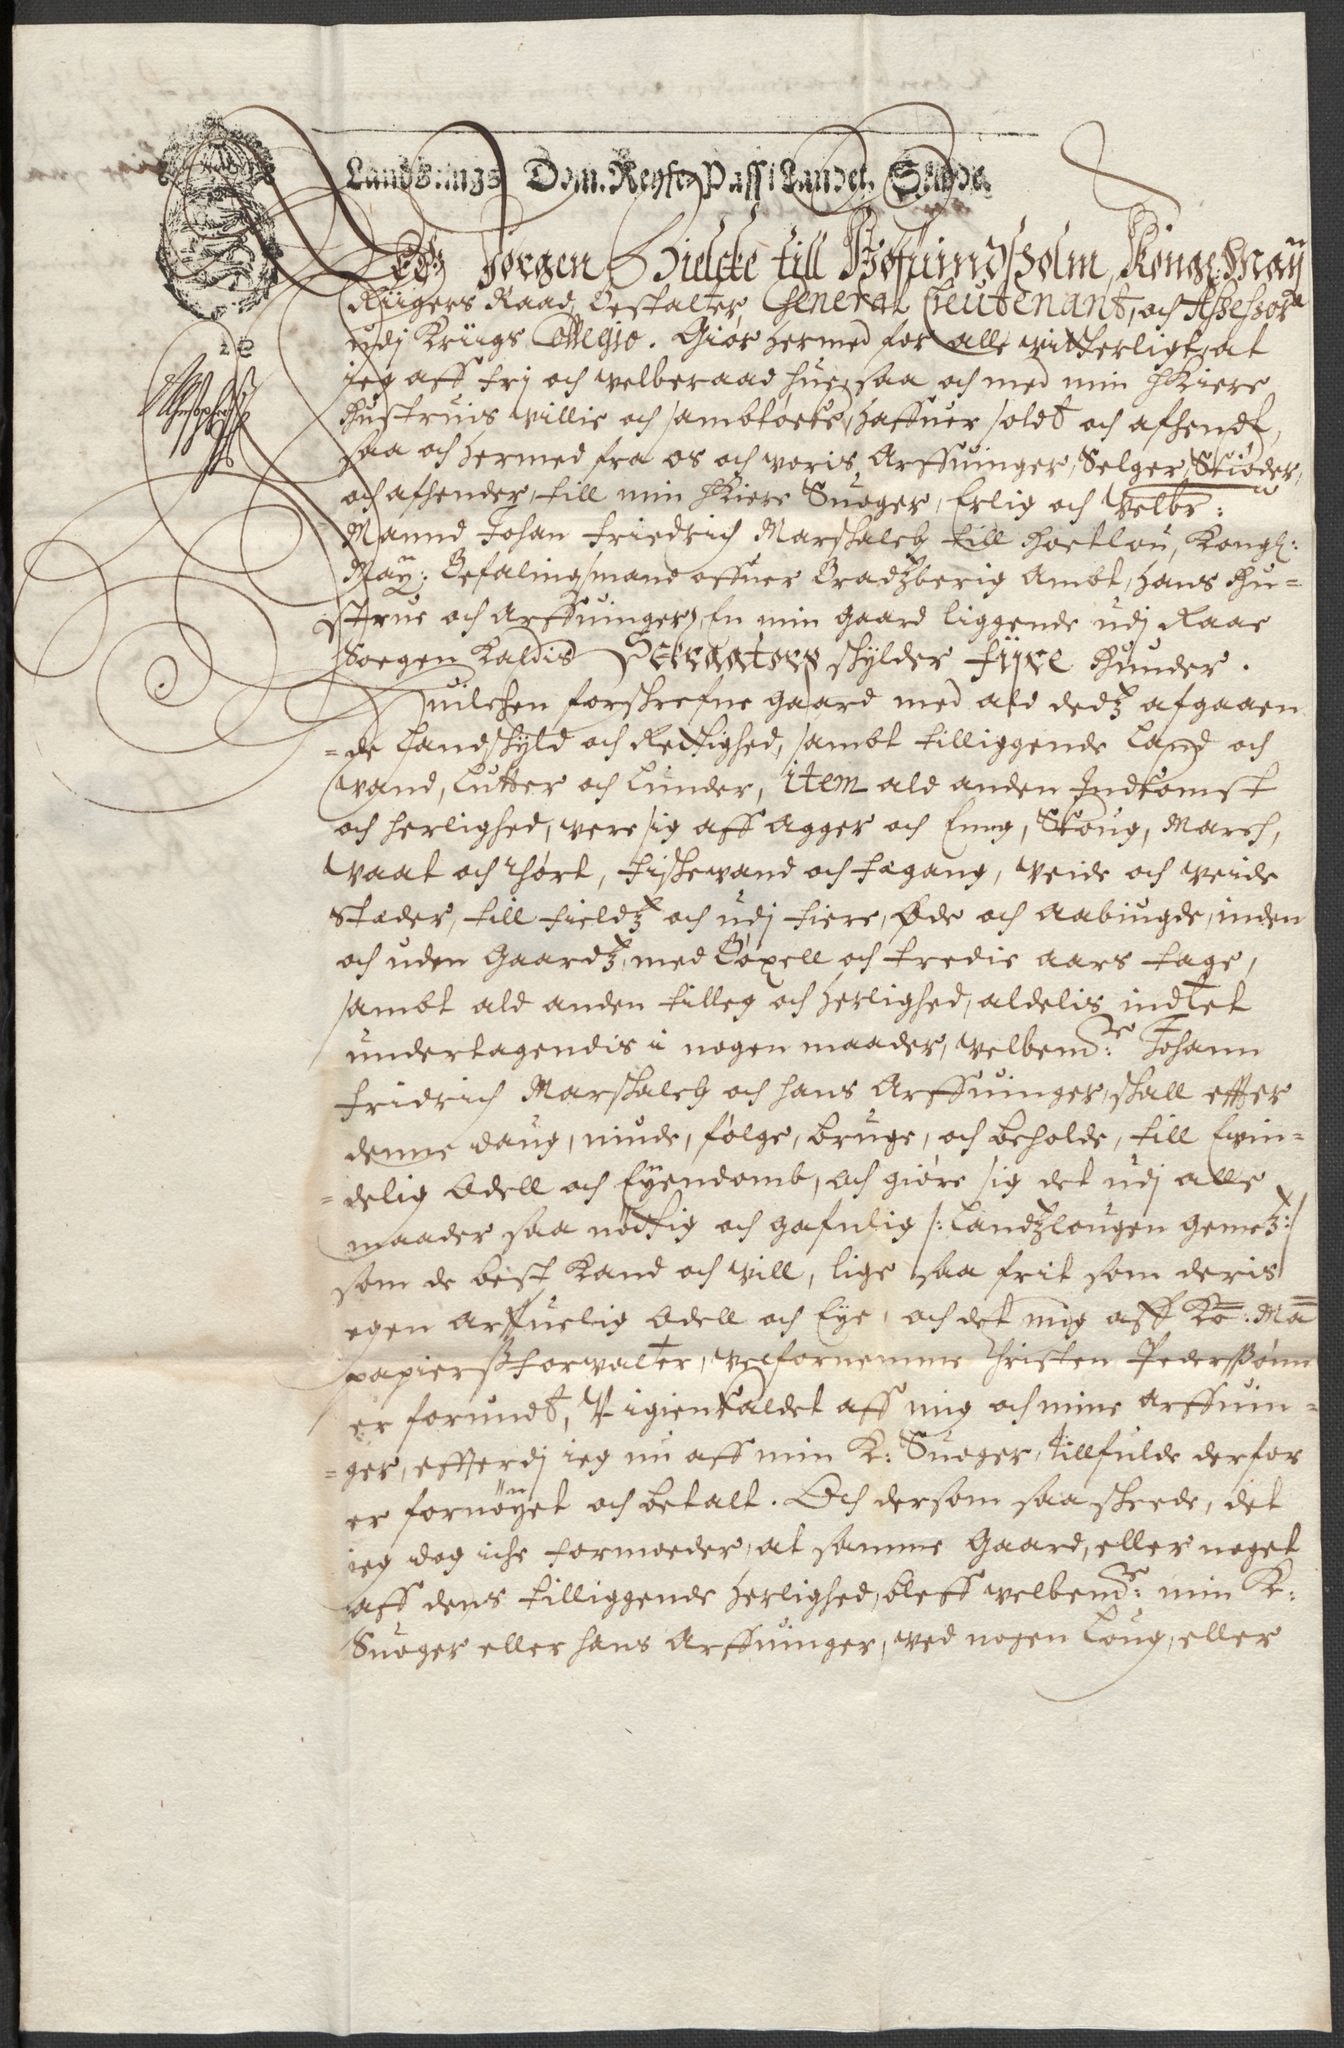 Landztings Dom. Reyse Pass i Landet. Skiøde.
Jeg Jørgen Bielcke till Hofvindholm, Kongl: Maÿ
Riigens Raad, Bestalter General Lieutenant, och Assessor
udj Kriigs Collegio. Giør hermed for alle vitterligt, at
ieg aff frj och velberaad hue, saa och med min Kiere
Hustruis villie och sambtøcke, haffuer soldt och afhendt,
saa och hermed fra os och voris Arffuinger, Selger, Skiøder,
och afhender, till min Kiere Suoger, Erlig och Velbr:
Mannd Johan Friedrich Marshalch till, Kongl:
Maÿ: Befalingsmand offuer Bradtzberig Ambt, hans Hu=
strue och Arffuinger, En min Gaard liggende udj Raae
Soegen Kaldis skylder fijre Hunder.
Huilchen forskrefne gaard med ald dedtz afgaaen
=de Landskyld och Rettighed, sambt tilliggende Land och
vand, Lutter och Lunder, item ald anden Indkomst
och herlighed, vere sig aff Agger och Eng, Skoug, March,
Vaat och Thørt, fiskevand och fægang, Veide och Veide
stæder, till fieldtz och udj fiere, Øde och aabiugde, inden
och uden Gaardtz, med Bøxell och tredie aars tage,
sambt ald anden tilleg och herlighed, aldelis indtet
undertagendis i nogen maader, Velbemte: Johann
Fridrich Marshalch och hans Arffuinger, skall effter
denne daug, niude, følge, bruge, och beholde, till Ewin=
=delig Odell och Eÿendomb, och giøre sig det udj alle
maader saa nøttig och gafnlig /: Landtzlougen gemes :/
som de best Kand och Vill, lige saa frit som deris
egen Arffuelig Odell och Eÿe, och det mig aff Ko: Ma
papiersforvalter, velfornemme Christen Pedersønn
er forundt, V-igienkaldet aff mig och mine Arffuin=
=ger, effterdj ieg nu aff min K: Suoger, tillfulde derfor
er fornøÿet och betalt. Och dersom saa skeede, det
ieg dog iche formoeder, at samme Gaard, eller noget
aff dens tilliggende herlighed, bleff velbemte: min K:
Suoger eller hans Arffuinger, ved nogen Loug, eller